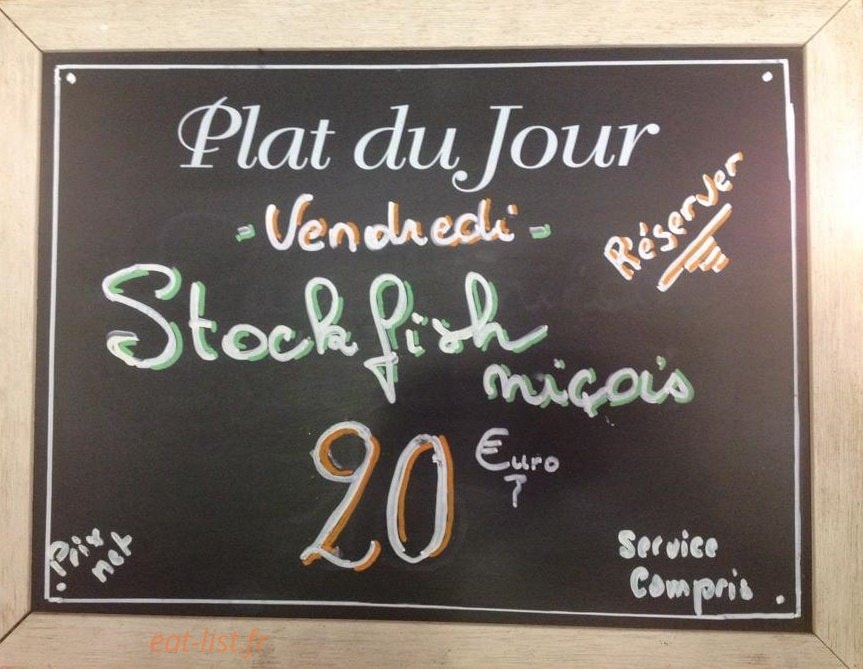 Plat du Jour
- Vendredi -
Réserver
Stockfish
niçois
20 Euro
Prix
net
Service
Compris
eat-list.fr